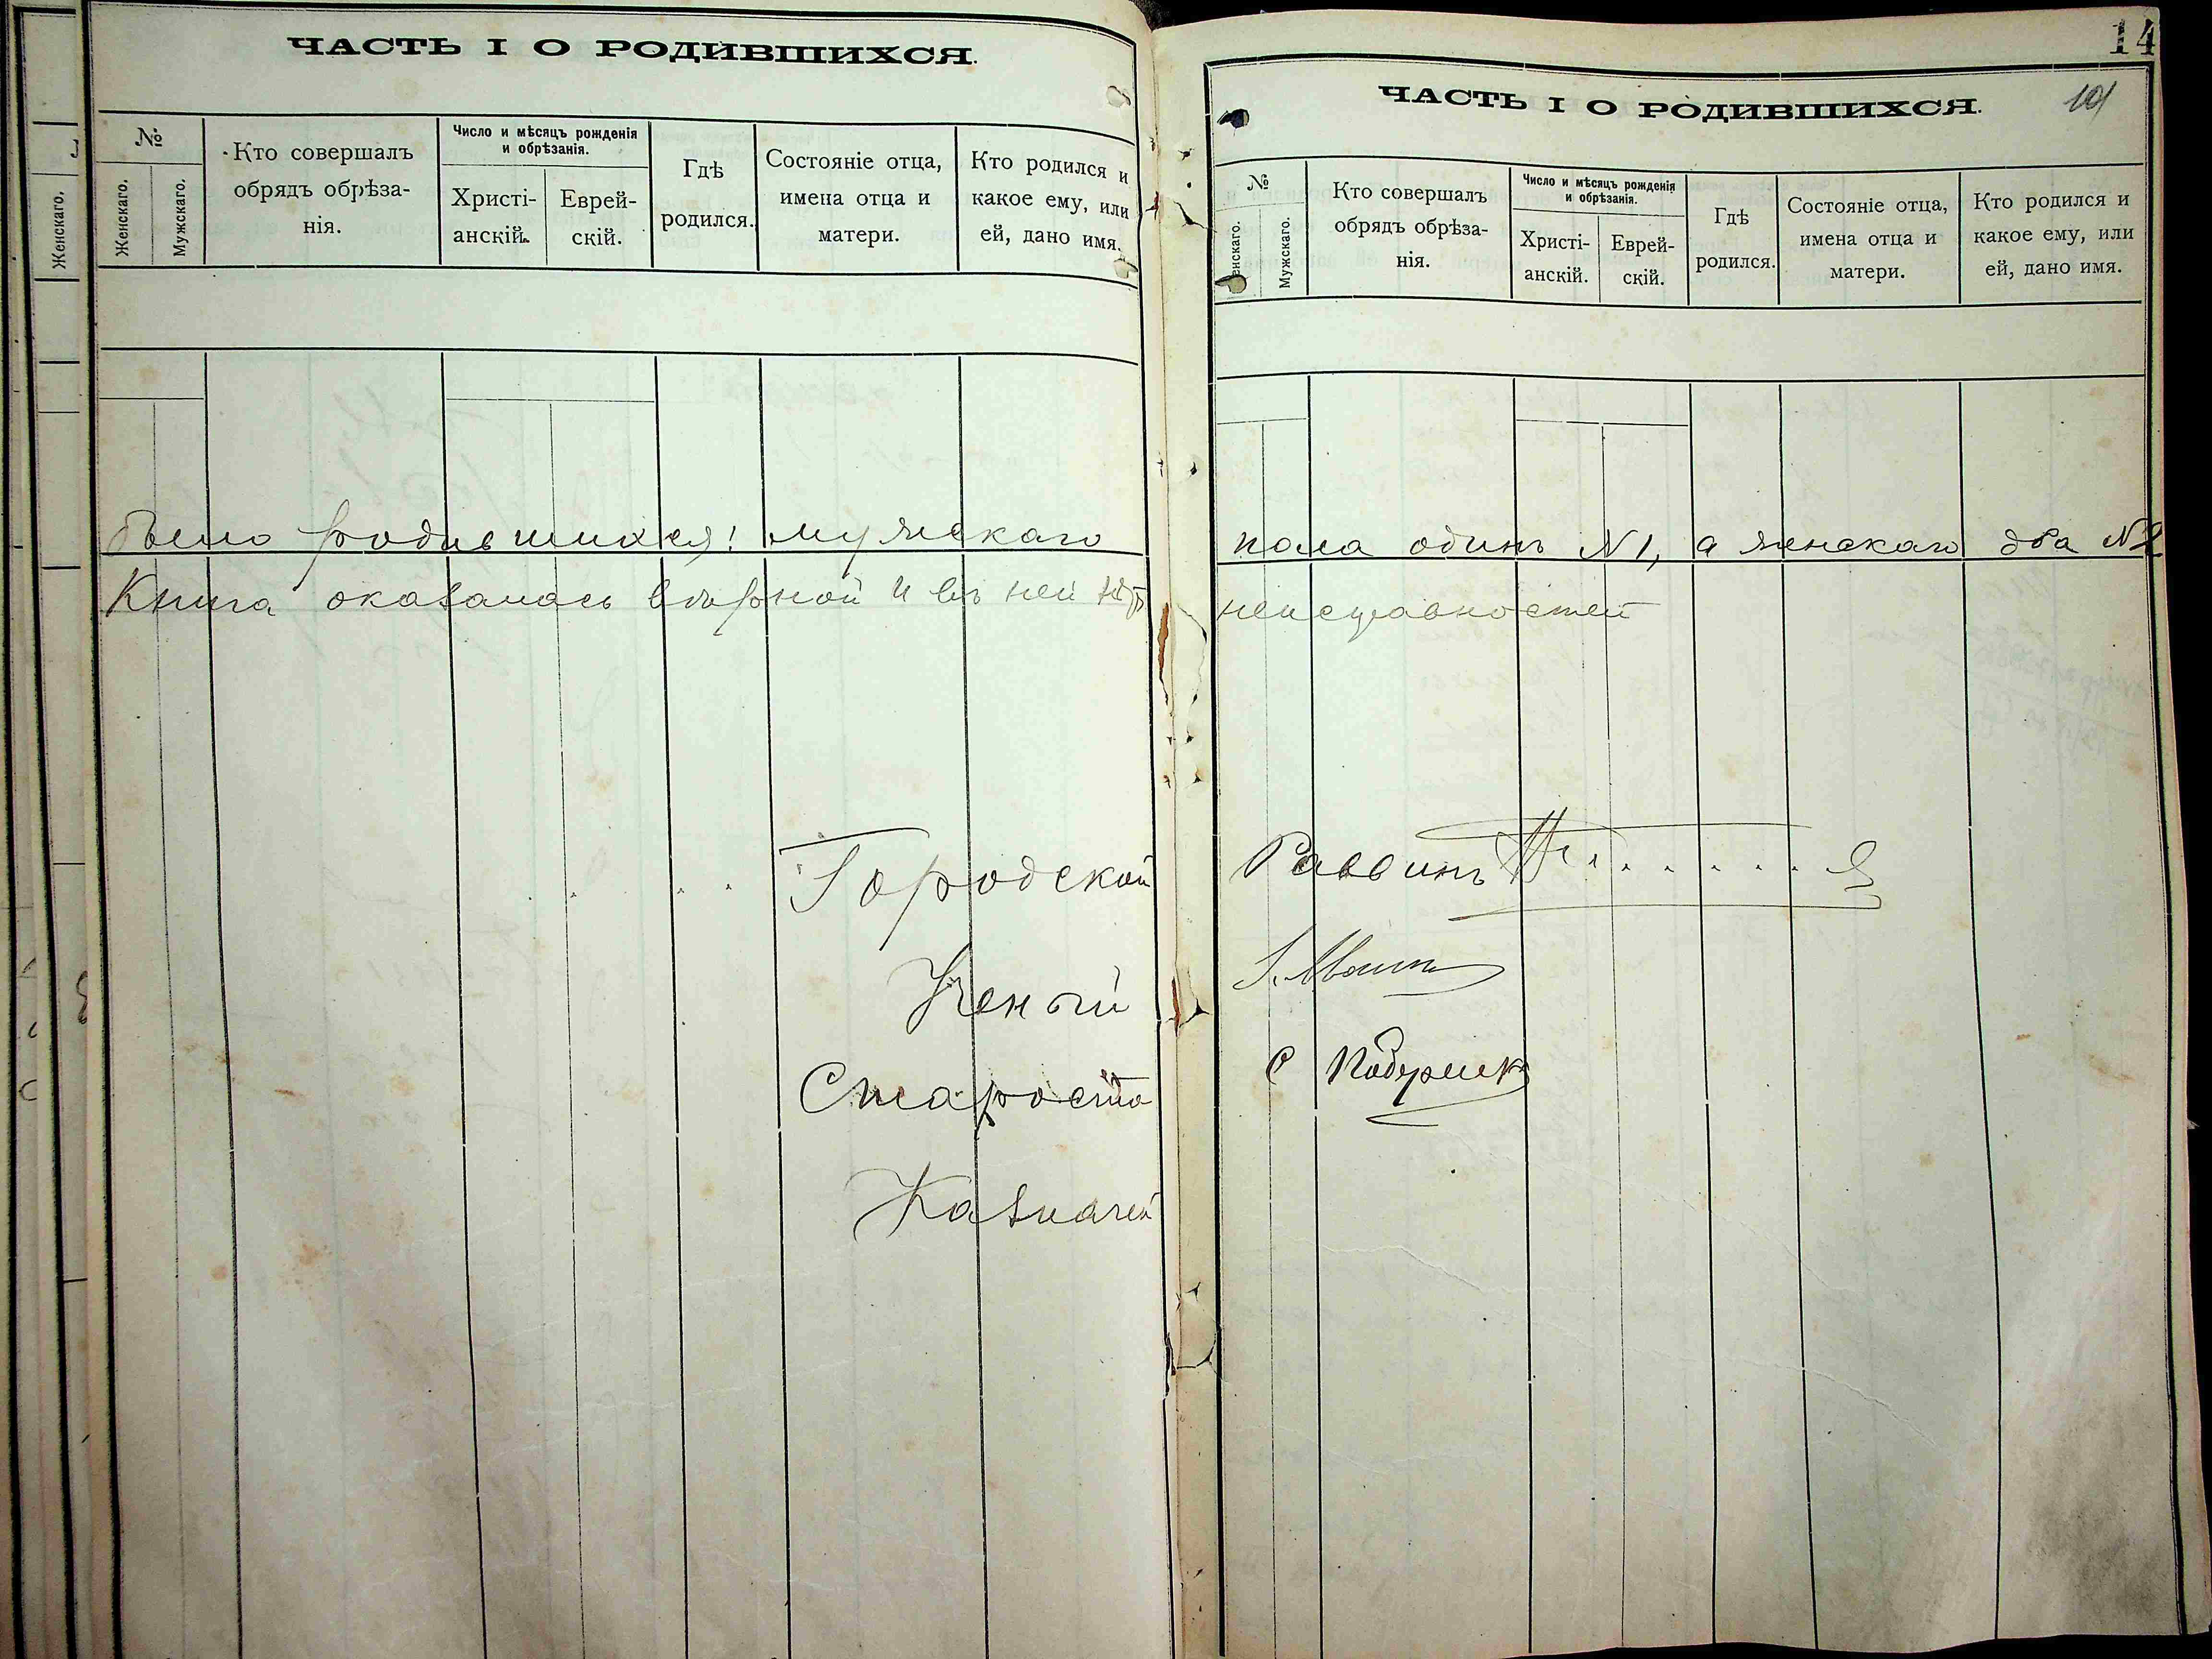 ЧАСТЬ I О РОДИВШИХСЯ.
№
Женскаго.
Мужскаго.
Кто совершалъ
обрядъ обрѣза-
нія.
Число и мѣсяцъ рожденія
и обрѣзанія.
Христі-
анскій.
Еврей-
скій.
Гдѣ
родился.
Состояніе отца,
имена отца и
матери.
Кто родился и
какое ему, или
ей, дано имя.
было родившихся: мужскаго
Книга оказалась вѣрной и въ ней нѣтъ
Городской
Ученый
Староста
Казначей
Женскаго.
14
101
ЧАСТЬ I О РОДИВШИХСЯ.
№
енскаго.
Мужскаго.
Кто совершалъ
обрядъ обрѣза-
нія.
Число и мѣсяцъ рожденія
и обрѣзанія.
Христі-
анскій.
Еврей-
скій.
Гдѣ
родился.
Состояніе отца,
имена отца и
матери.
Кто родился и
какое ему, или
ей, дано имя.
пола одинъ №1, а женскаго два №2
неисправностей
Раввинъ